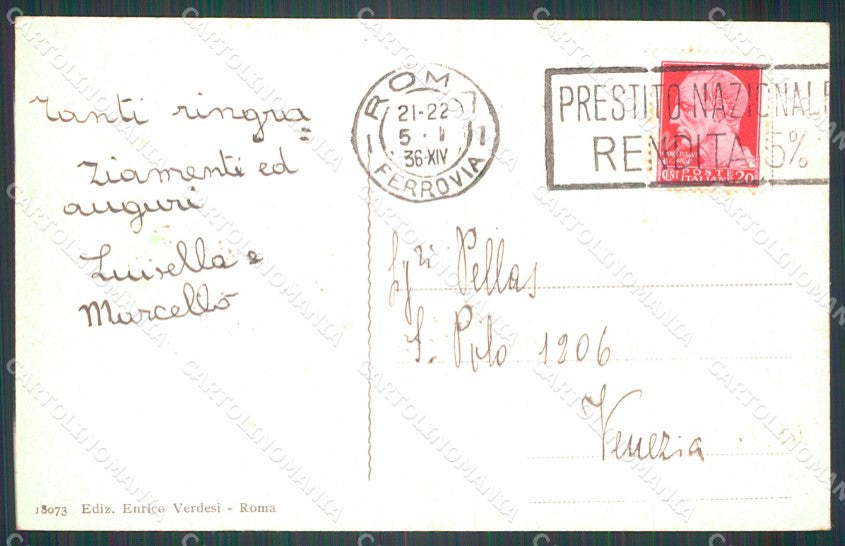 Tanti ringra=
ziamenti ed
auguri
Luisella e
Marcello
ROMA
21-22
5 · I
36·XIV
1 FERROVIA 1
PRESTITO NAZIONALE
RENDITA 5%
POSTE
ITALIANE
CENT 20
Sgri Pellas
S. Polo 1206
Venezia
18073 Ediz. Enrico Verdesi - Roma
CARTOLINOMANIA